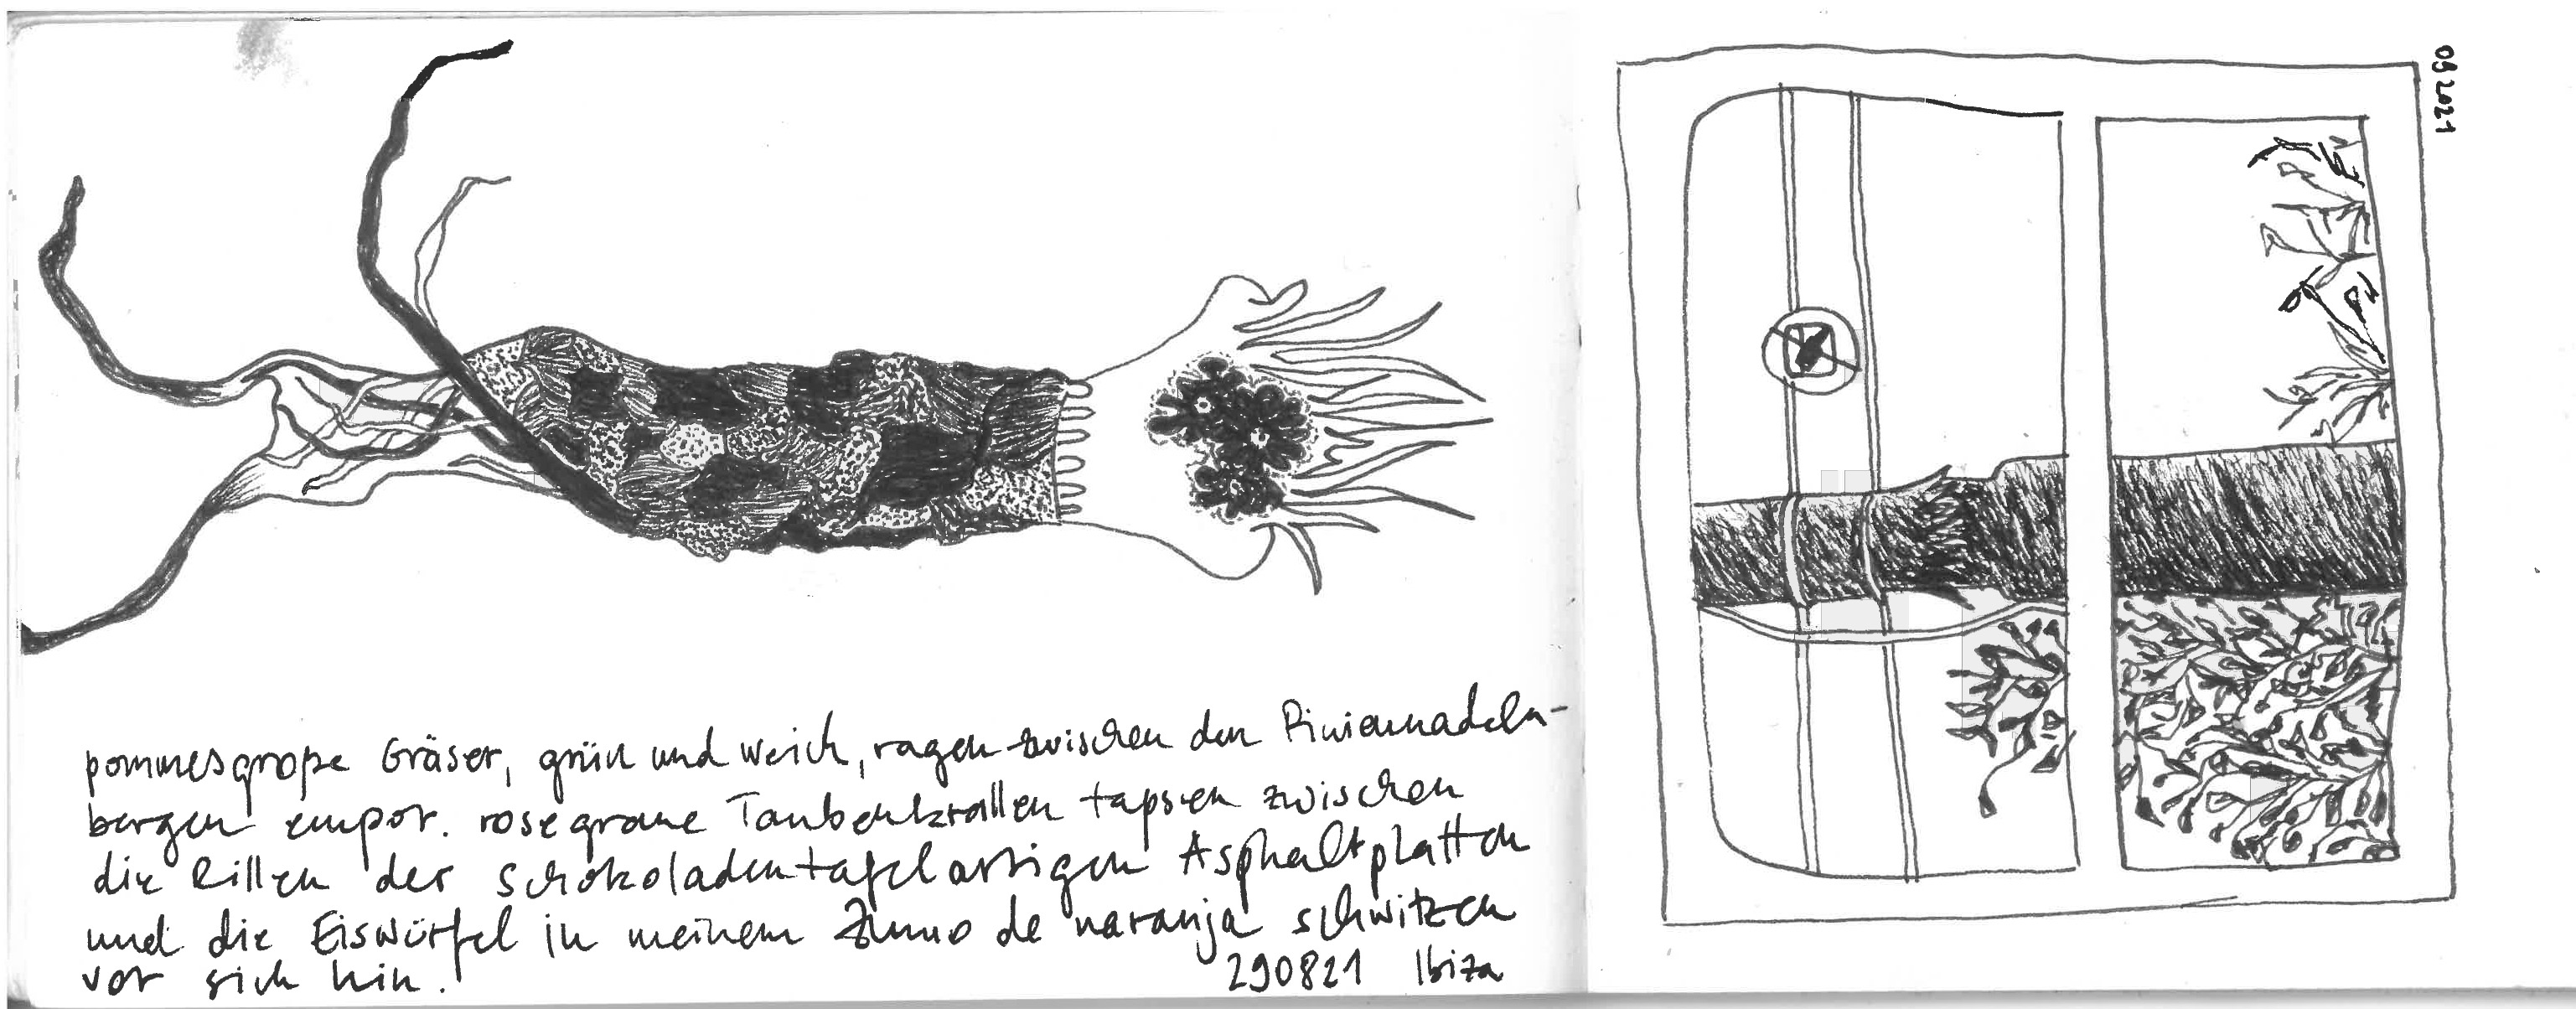 pommesgroße Gräser, grün und weich, ragen zwischen den Piniennadeln-
bergen empor. rosegraue Taubenkrallen tapsen zwischen
die Rillen der schokoladentafelartigen Asphaltplatten
und die Eiswürfel in meinem Zumo de naranja schwitzen
vor sich hin.
290821 Ibiza
092021